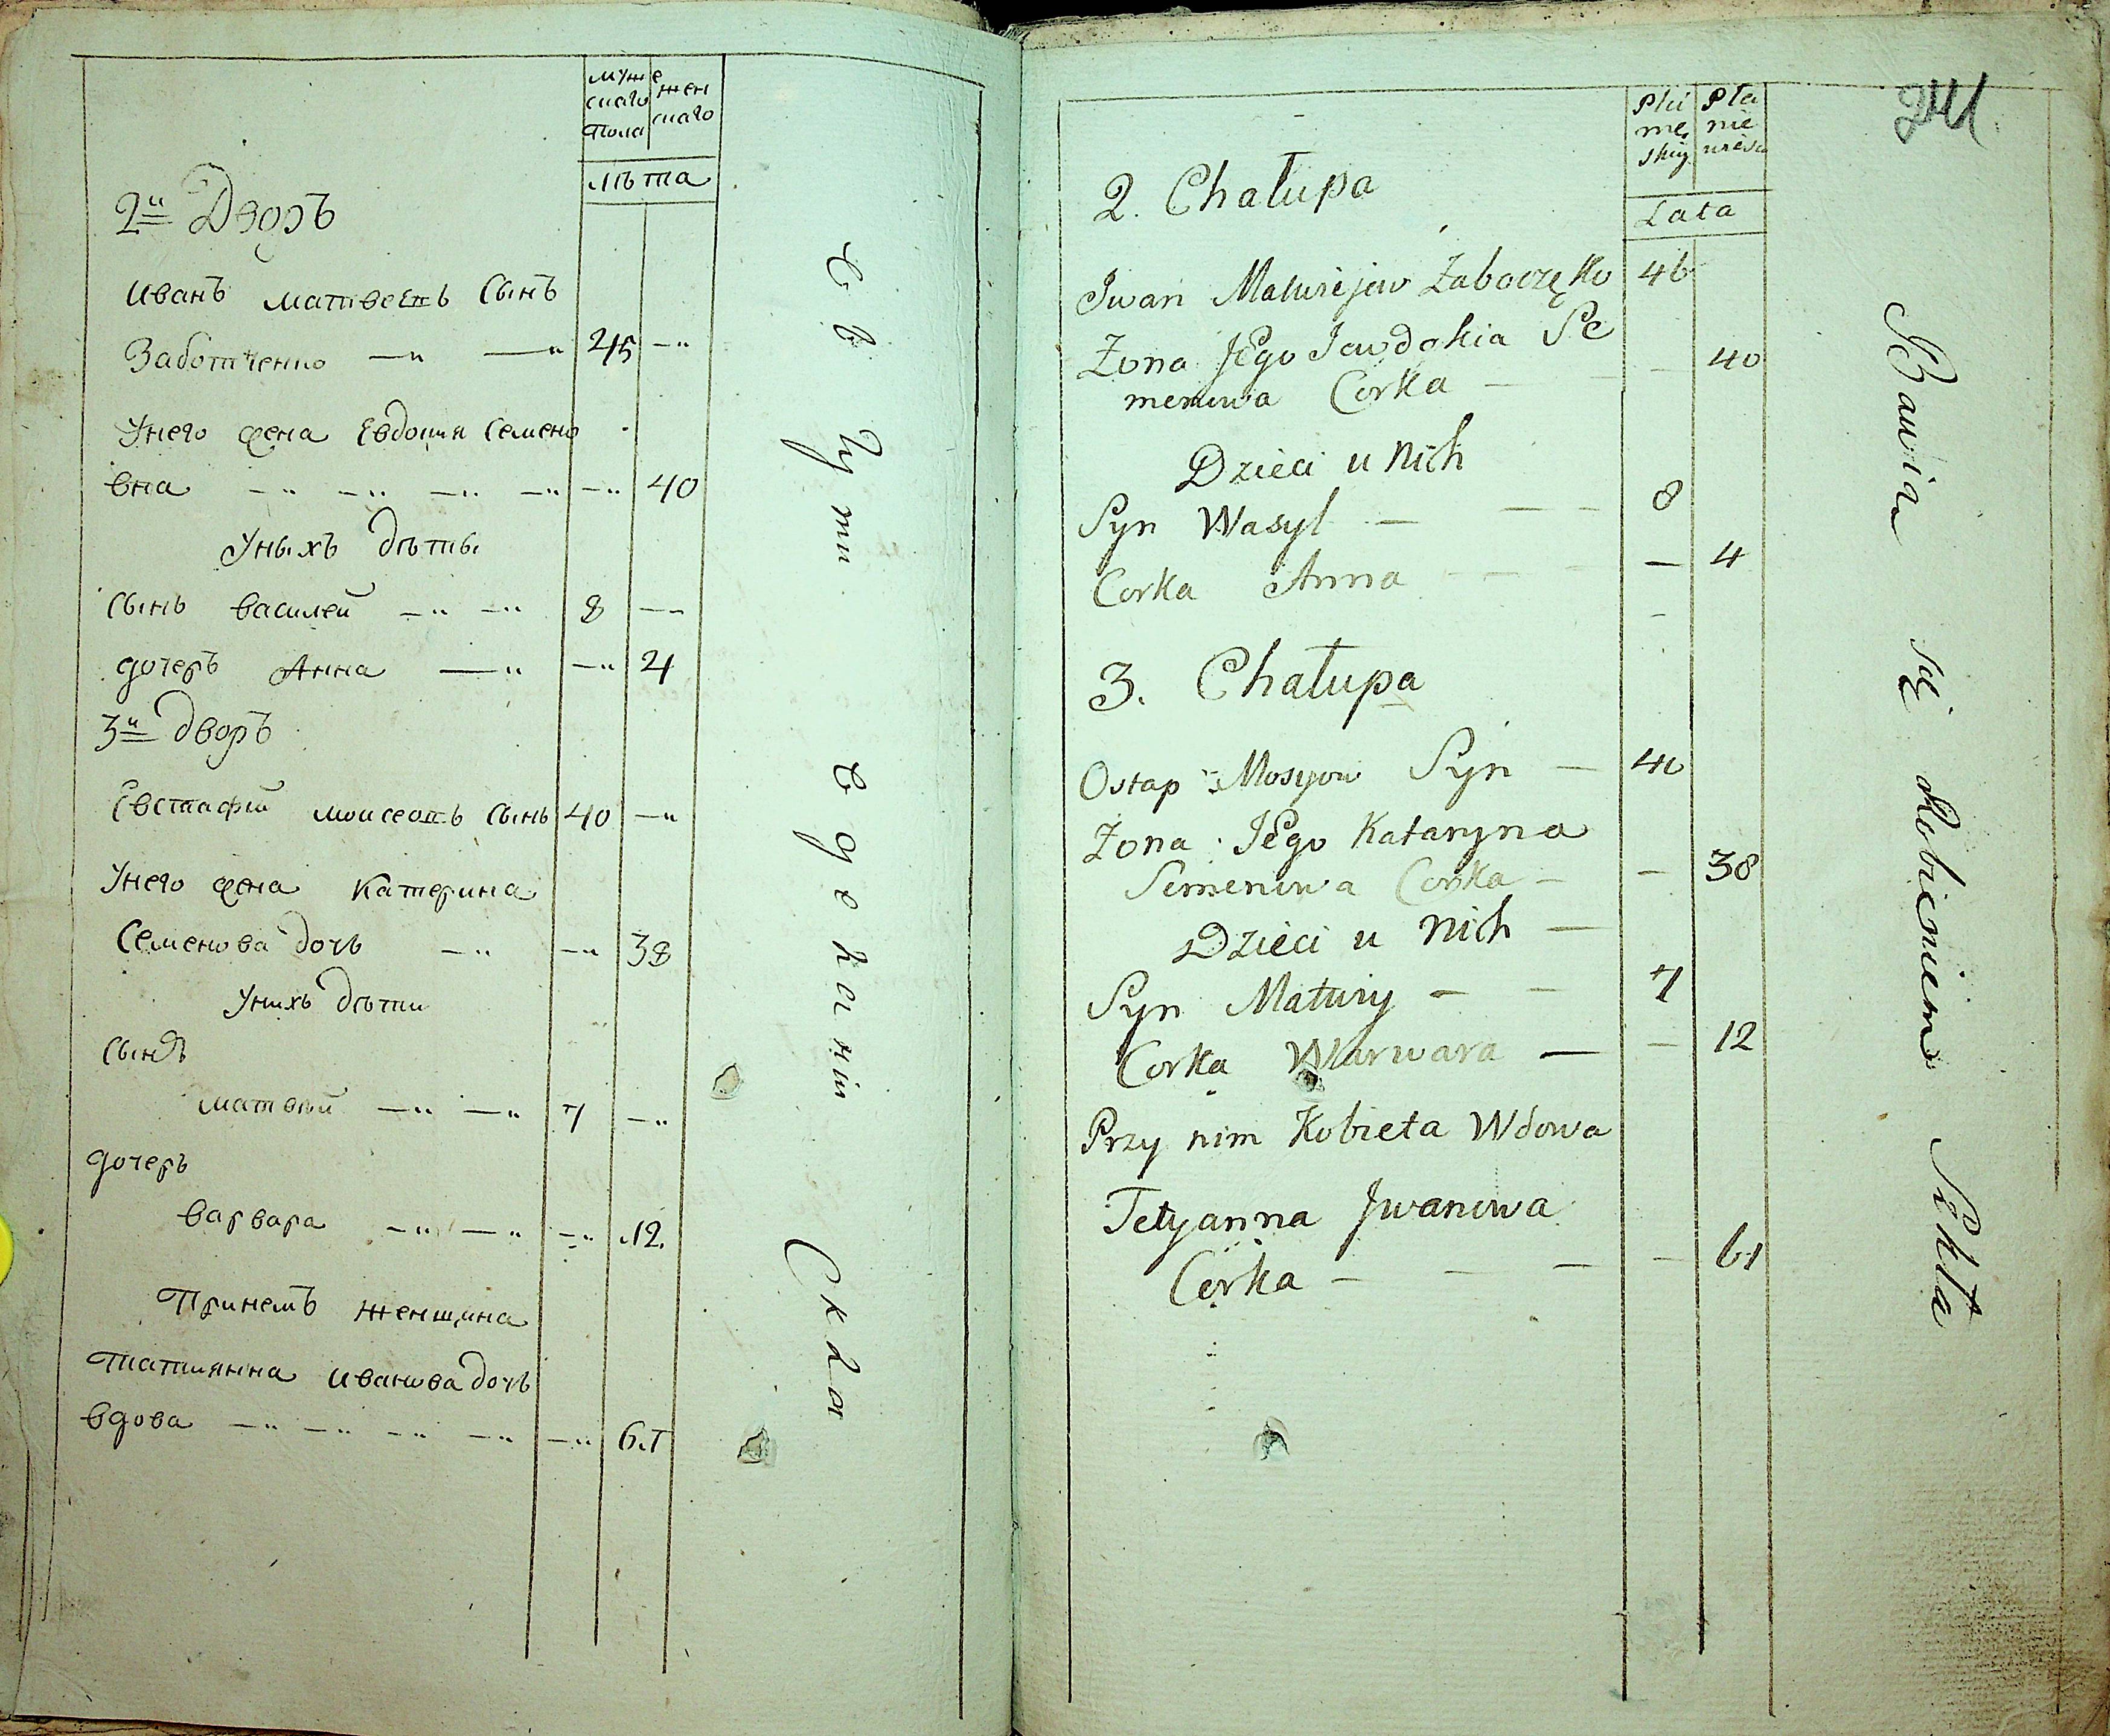 муже
скаго
пола
жен
скаго
лѣта
2й Дворъ
Иванъ матвеевъ Сынъ
Заботченко — — 45 —
Унего жена Евдокия Семено
вна — — — — — 40
Уныхъ дѣты
Сынъ василей — — 8 —
дочеръ Анна — — 4
3й дворъ
Евстафий моисеевъ Сынъ 40 —
Унего жена Катерина
Семенова дочь — — 38
Унихъ дѣти
Сынъ
матвѣй — — 7 —
дочеръ
варвара — — — 12
Принемъ женщина
татиянна иванова дочь
вдова — — — — — 61
Płci
mę
skiey
Pła
nie
Lata
2. Chałupa
Iwan Matwiejow Zaboczęko 46
Żona JEgo Jewdokia Se
menowa Corka — — — 40
Dzieci u Nich
Syn Wasyl — — — 8
Corka Anna — — — — 4
3. Chałupa
Ostap Mosyow Syn — 40
Żona JEgo Kataryna
Semenowa Corka — — 38
Dzieci u Nich —
Syn Matwiy — — 7
Corka Warwara — — 12
Przy nim Kobieta Wdowa
Tetyanna Iwanowa
Corka — — — — 61
Bawią się Robieniem Szkła